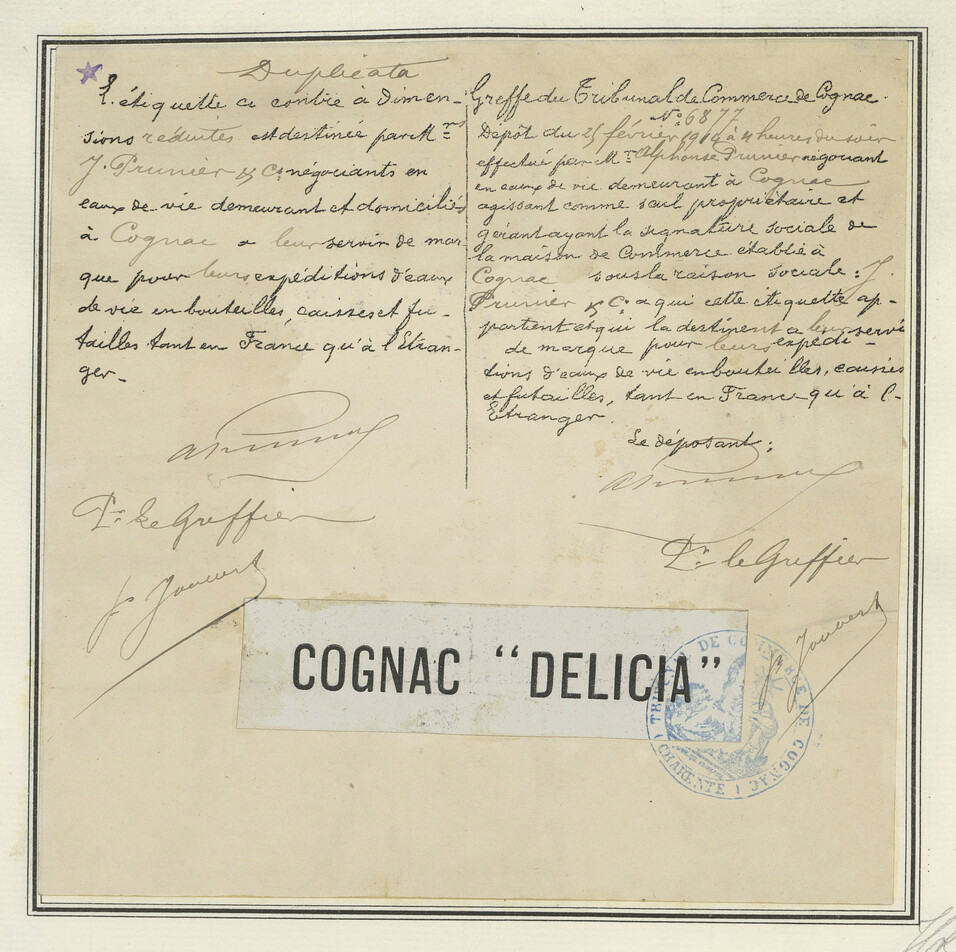 Duplicata
L'étiquette ci contre à dimen-
sions réduites est destinée par Mrs
J. Prunier & Cie négociants en
eaux de vie demeurant et domiciliés
à Cognac a leur servir de mar
que pour leurs expéditions d'eaux
de vie en bouteilles, caisses et fu-
tailles tant en France qu'à l'Etran-
ger.-
APrunier
Pr Le Greffier
Joubert
Greffe du Tribunal de Commerce de Cognac.
No 6877
Dépôt du 25 février à 4 heures du soir
effectué par Mr Alphonse Prunier négociant
en eaux de vie demeurant à Cognac
agissant comme seul propriétaire et
gérant ayant la signature sociale de
la maison de Commerce établie à
Cognac sous la raison sociale : J.
Prunier & Co a qui cette étiquette ap-
partient et qui la destinent a leur servi
de marque pour leurs expédi-
tions d'eaux de vie en bouteilles, caisses
et futailles, tant en France qu'à l'-
Etranger.
Le déposant,
APrunier
Pr le Greffier
Joubert
COGNAC "DELICIA"
TRIBUNAL DE COMMERCE DE COGNAC
(CHARENTE)